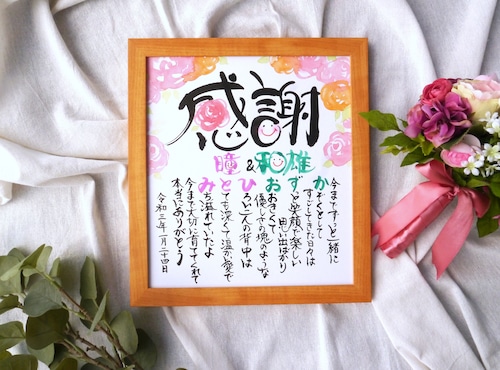 感謝
瞳&和雄
今までずっと一緒に
かぞくとして
すごしてきた日々は
ずっと笑顔で楽しい
思い出ばかり
おおきくて
優しさの塊のような
ひろい二人の背中は
とても深くて温か愛で
みち溢れていたよ
今まで大切に育ててくれて
本当にありがとう
令和三年一月二十四日